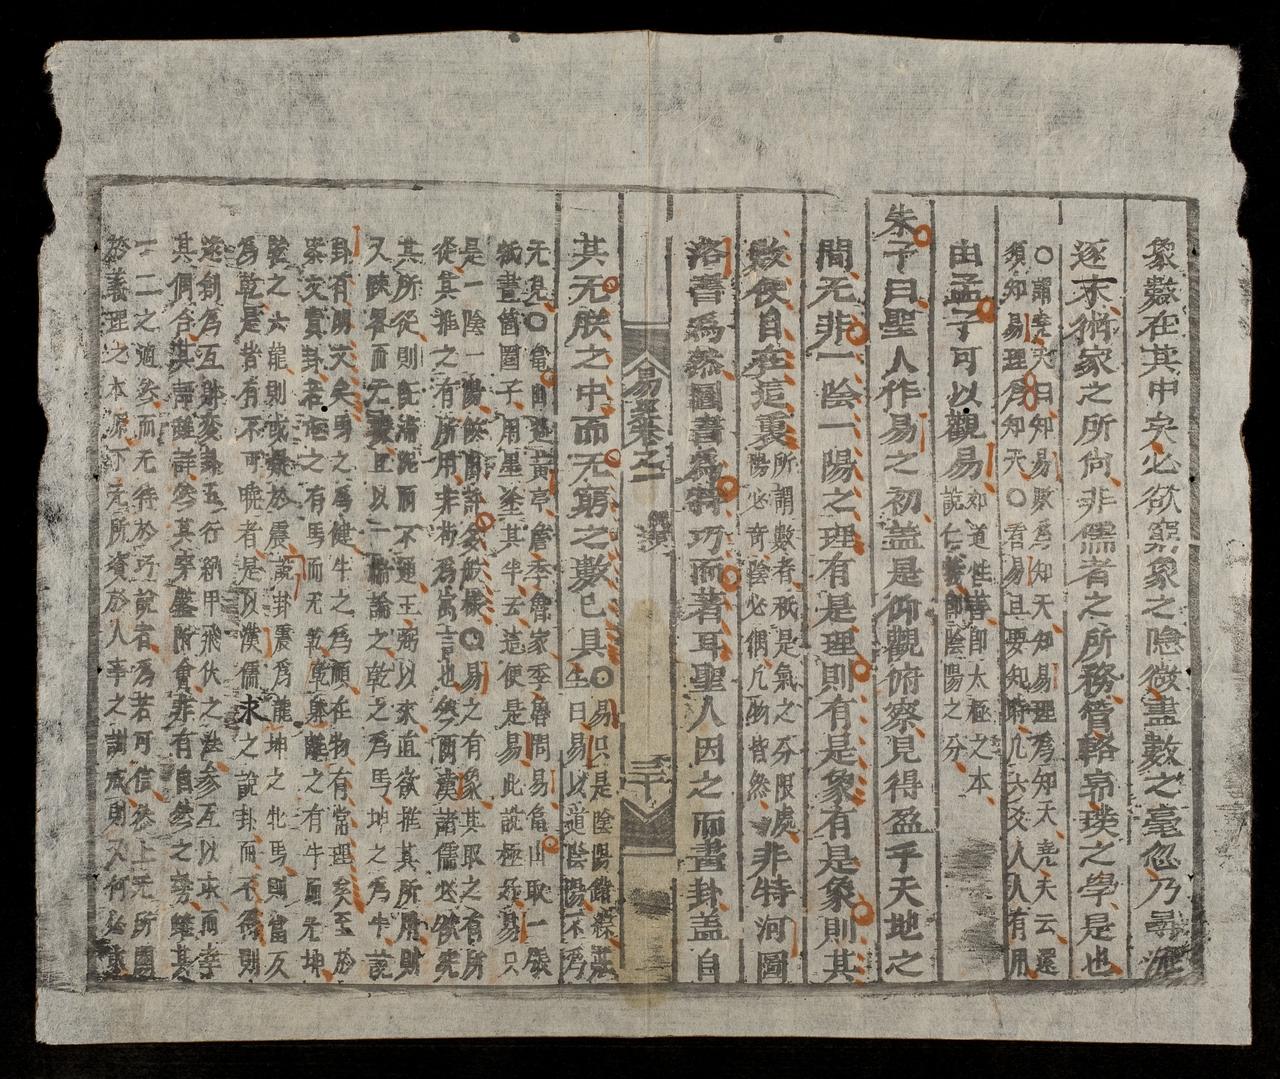 象數在其中矣必欲窮象之隱微盡數之毫忽乃尋流
逐末術家之所尚非儒者之所務管輅郭璞之學是也
○謂堯夫曰知易數爲知天知易理爲知天堯夫云還
須知易理爲知天○看易且要知時凡六爻人人有用
由孟子可以觀易
亦道性善卽太極之本
說仁義卽陰陽之分
朱子曰聖人作易之初盖是仰觀俯察見得盈乎天地之
間无非一陰一陽之理有是理則有是象有是象則其
數便自在這裏
所謂數者秖是氣之分限處
陽必奇陰必偶凡物皆然
非特河圖
洛書爲然圖書爲特巧而著耳聖人因之而畫卦盖自
易纂卷之一
三十
其无朕之中而无窮之數已具○易只是陰陽錯綜
生曰易以道陰陽不爲
无見○當因過黃亭詹季魯家季魯問易當因取一張
紙畫箇圈子用墨塗其半云這便是易此說極好易只
是一陰一陽做出許多般樣○易之有象其取之有所
從其推之有所用非苟爲寓言也然兩漢諸儒必欲究
其所從則旣滯泥而不通王弼以來直欲推其所用則
又踈畧而无據且以一端論之乾之爲馬坤之爲牛說
卦有明文矣馬之爲健牛之爲順在物有常理矣至於
案文責卦若屯之有馬而无乾離之有牛而无坤
乾之六龍則或疑於震說卦震爲龍坤之牝馬則當反
爲乾是皆有不可曉者是以漢儒求之說卦而不得則
遂創爲互體變卦五行納甲飛伏之法參互以求而幸
其偶合其說雖詳然其穿鑿附會非有自然之勢雖其
一二之適然而无待於巧說者爲若可信然上无所
於義理之本原下无所資於人事之訓戒則又何必